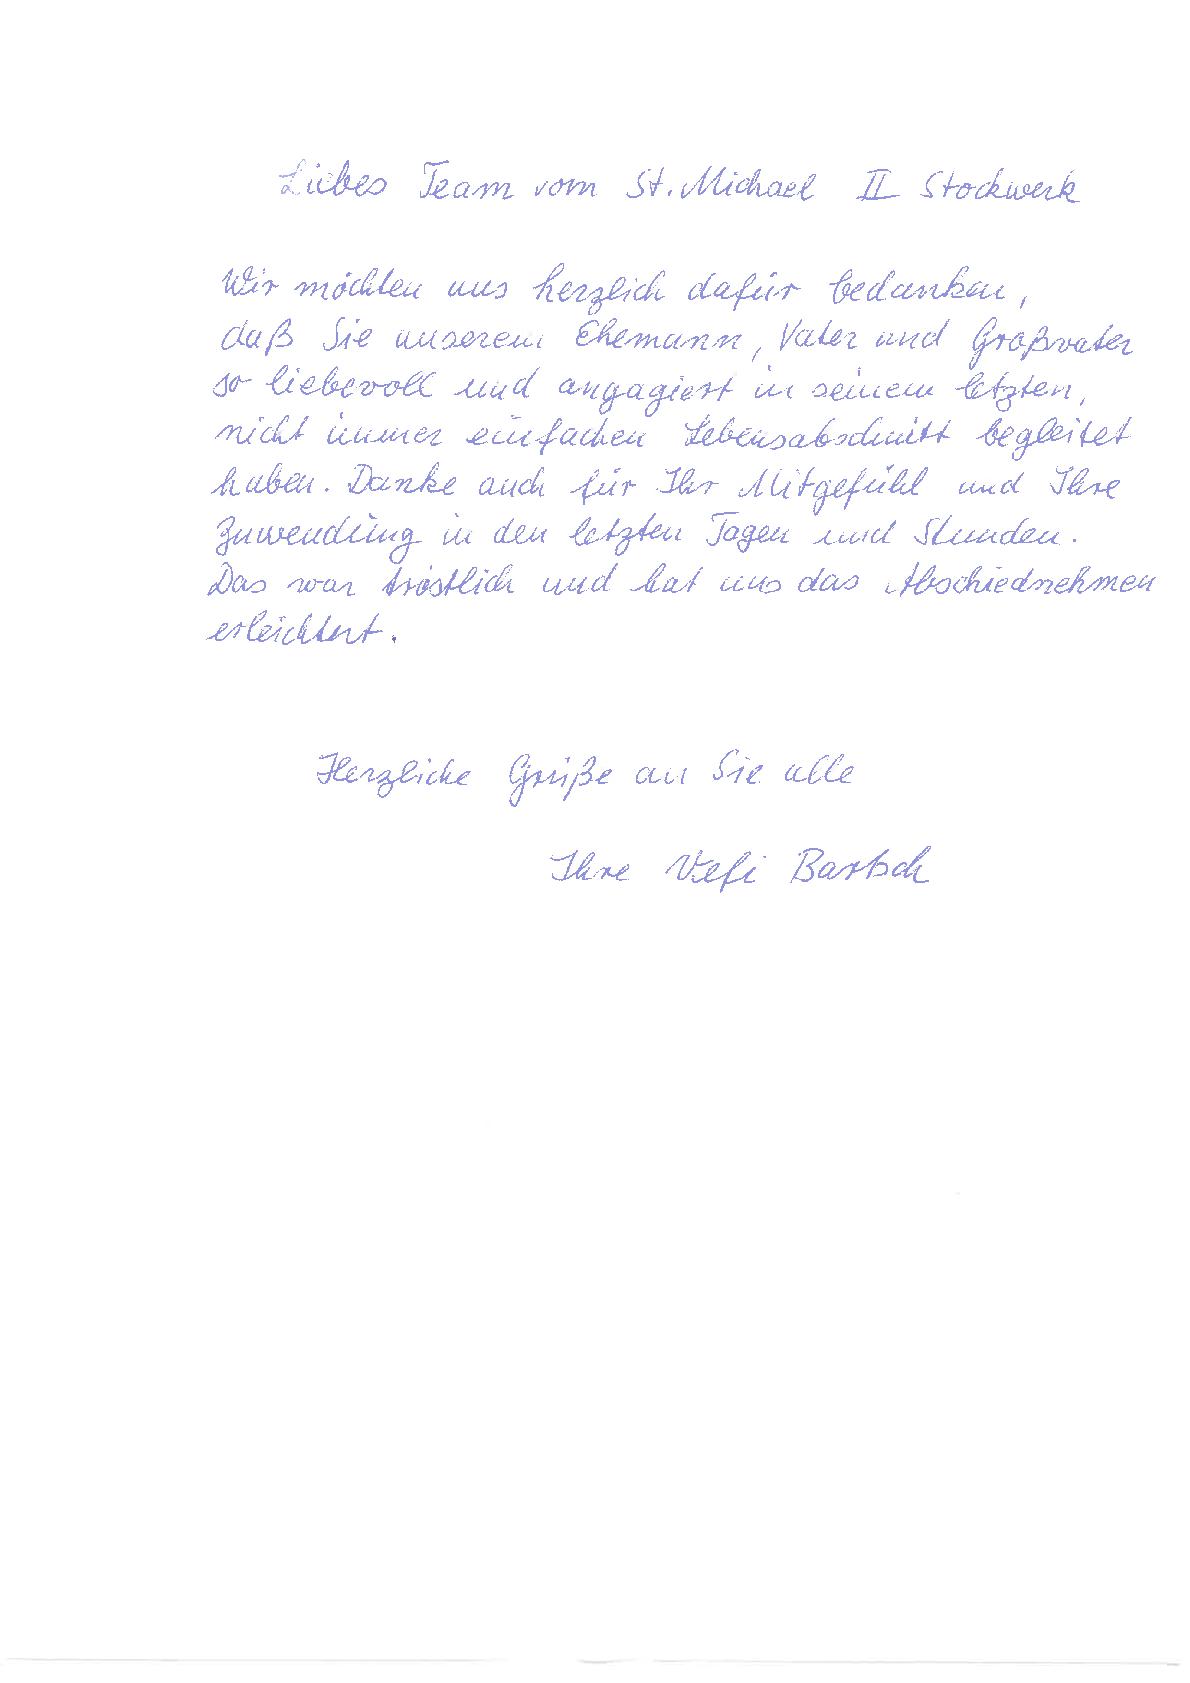 Liebes Team vom St. Michael II Stockwerk
Wir möchten uns herzlich dafür bedanken,
daß Sie unserem Ehemann, Vater und Großvater
so liebevoll und angagiert in seinem letzten,
nicht immer einfachen Lebensabschnitt begleitet
haben. Danke auch für Ihr Mitgefühl und Ihre
Zuwendung in den letzten Tagen und Stunden.
Das war tröstlich und hat uns das Abschiednehmen
erleichtert.
Herzliche Grüße an Sie alle
Ihre Bartsch